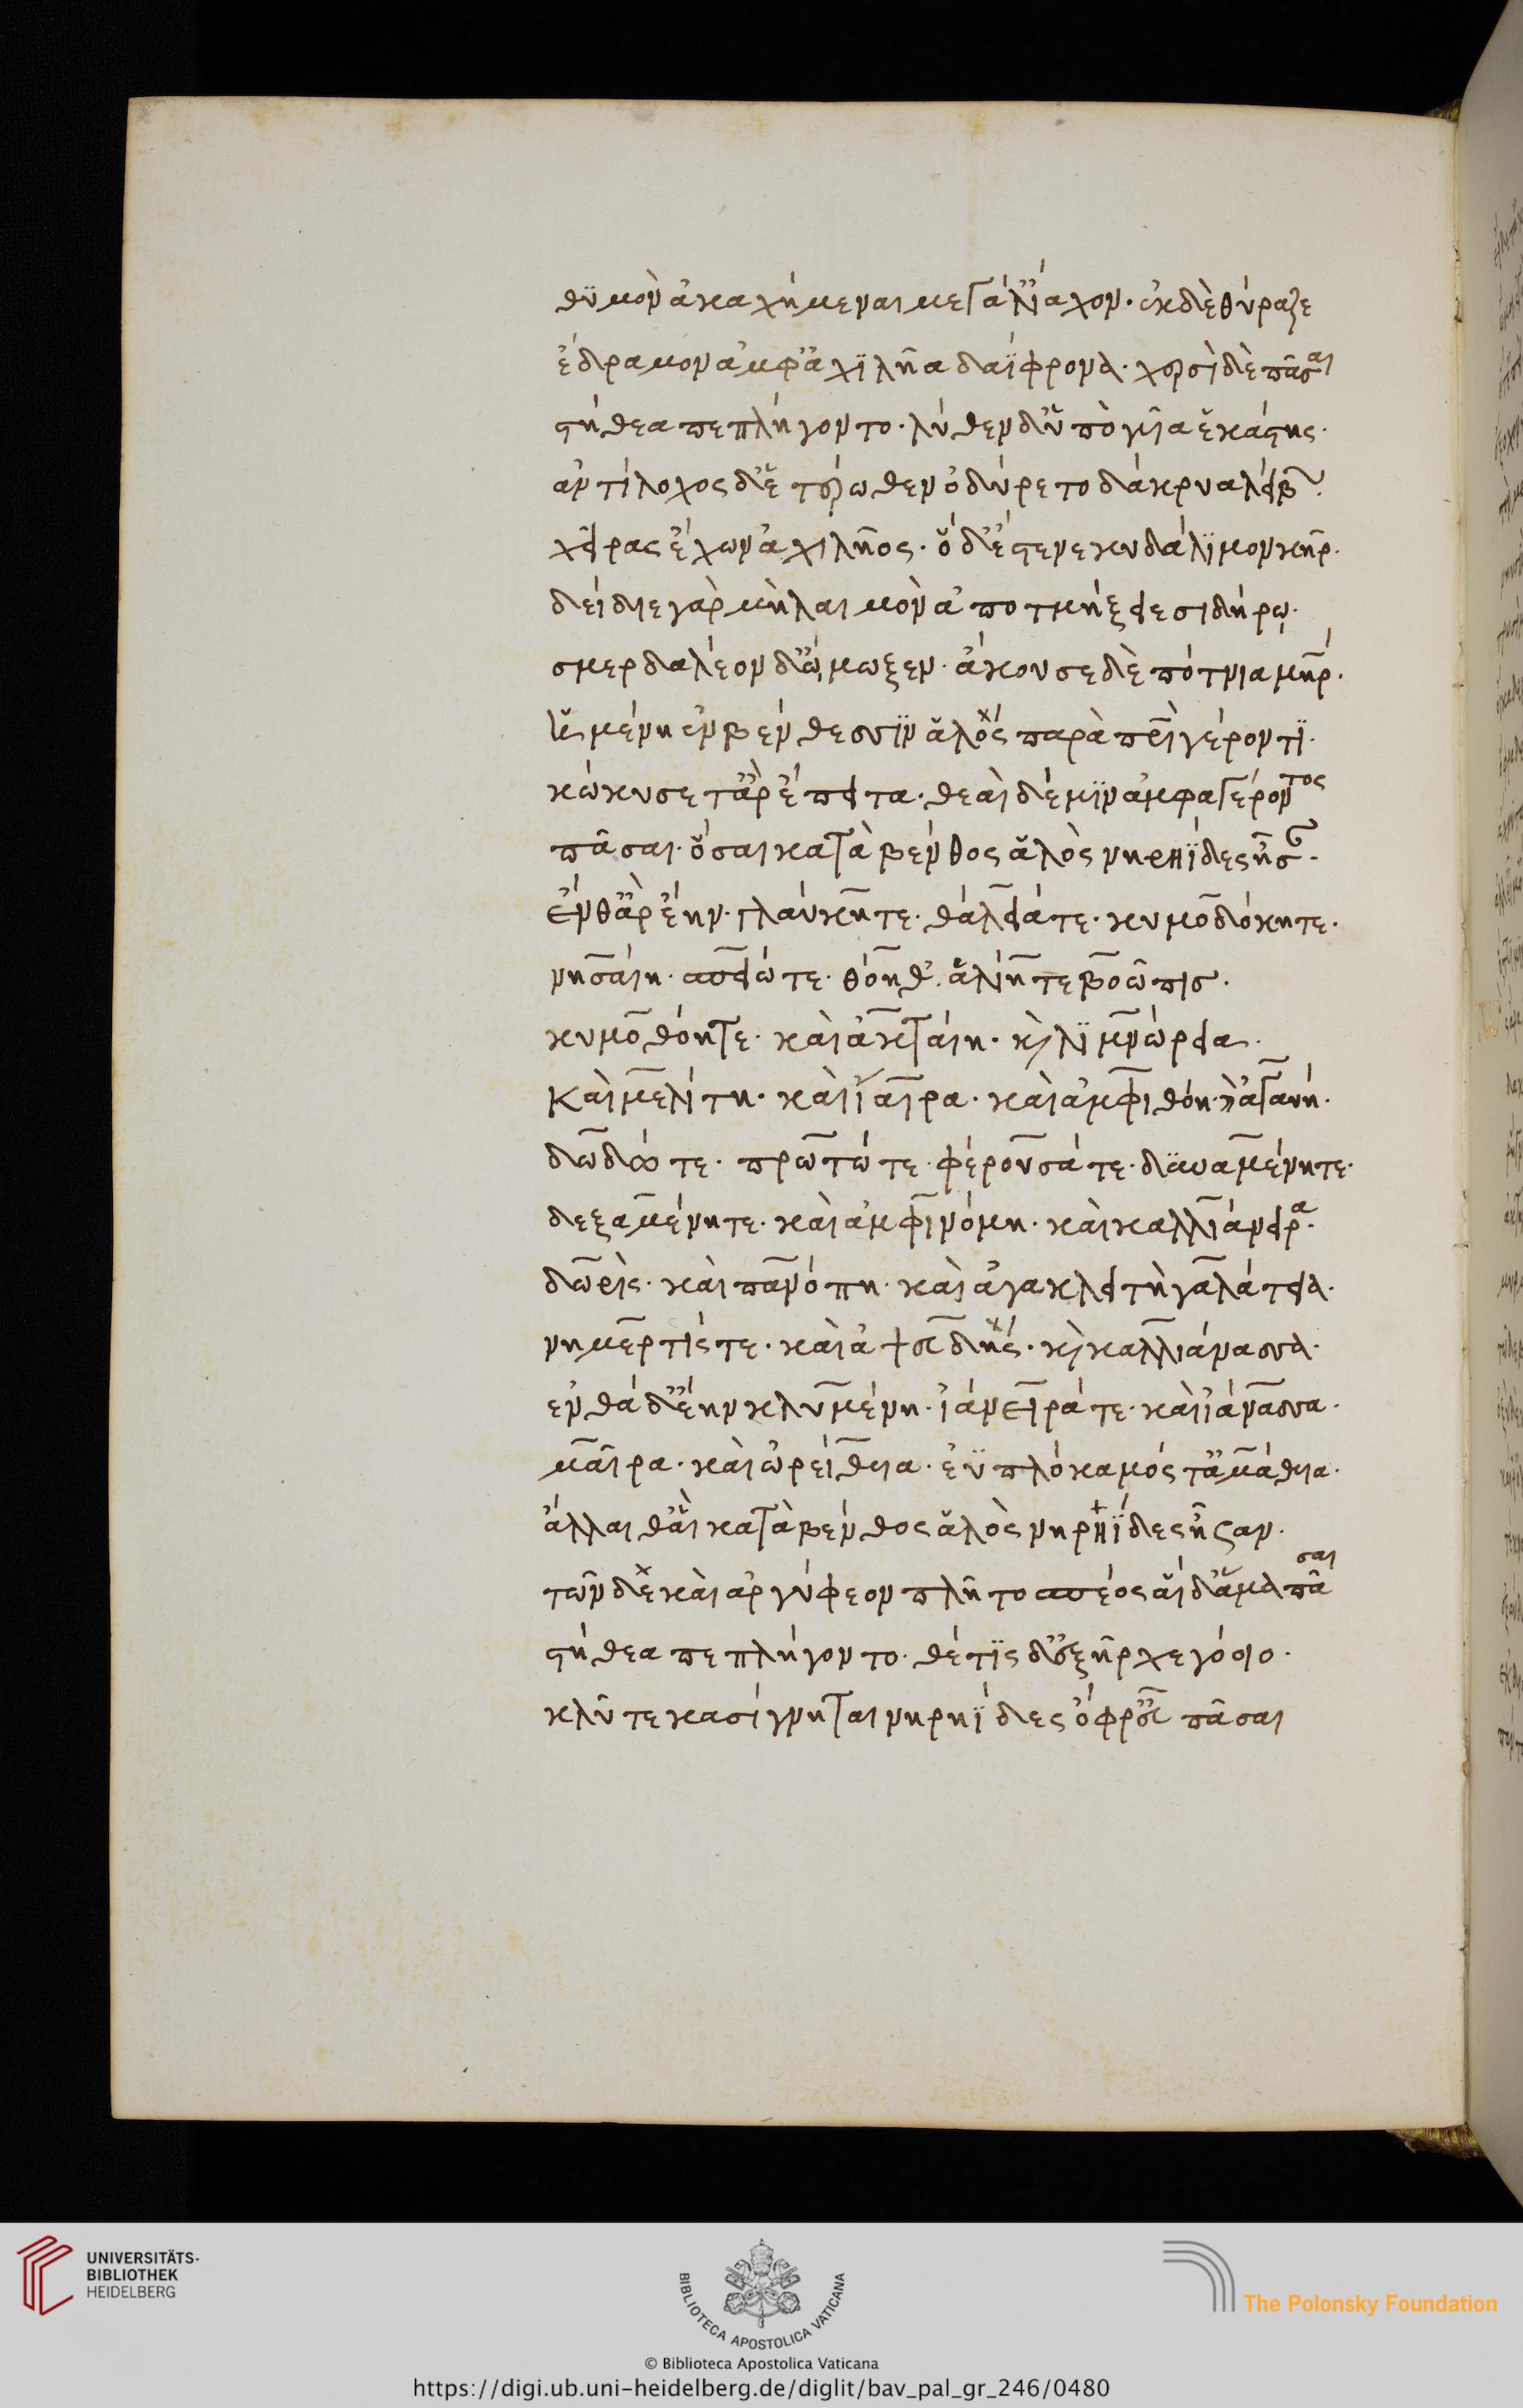 θυμὸν ἀκαχήμεναι μεγάλ' ἴαχον· ἐκ δὲ θύραζε
ἔδραμον ἀμφ' ἀχιλῆα δαΐφρονα· χερσὶ δὲ πᾶσαι
στήθεα πεπλήγοντο· λύθεν δ' ὑπὸ γυῖα ἑκάστης·
ἀντίλοχος δ' ἑτέρωθεν ὀδύρετο δάκρυα λείβων·
χεῖρας ἔχων ἀχιλῆος· ὁ δ' ἔστενε κυδάλιμον κῆρ·
δείδιε γὰρ μὴ λαιμὸν ἀποτμήξειε σιδήρω·
σμερδαλέον δ' ὤμωξεν· ἄκουσε δὲ πότνια μήτηρ·
ἡμένη ἐν βένθεσσιν ἁλὸς παρὰ πατρὶ γέροντι·
κώκυσέ τ' ἂρ ἔπειτα· θεαὶ δέ μιν ἀμφαγέροντο
πᾶσαι· ὅσαι κατὰ βένθος ἁλὸς νηρηΐδες ἦσαν·
ἔνθ' ἂρ ἔην· γλαύκη τε· θάλειά τε· κυμοδόκη τε·
νησαίη· σπειώ τε· θόη θ' ἁλίη τε βοῶπις·
κυμοθόη τε· καὶ ἀκταίη· καὶ λιμνώρεια·
καὶ μελίτη· καὶ ἴαιρα· καὶ ἀμφιθόη· καὶ ἀγαυή·
δωδώ τε· πρωτώ τε· φέρουσά τε· δυναμένη τε·
δεξαμένη τε· καὶ ἀμφινόμη· καὶ καλλιάνειρα·
δωρὶς· καὶ πανόπη· καὶ ἀγακλειτὴ γαλάτεια·
νημερτής τε· καὶ ἀψευδής· καὶ καλλιάνασσα·
ἐνθάδ' ἔην κλυμένη· ἰάνειρά τε· καὶ ἰάνασσα·
μαῖρα· καὶ ὠρείθυια· ἐϋπλόκαμός τ' ἀμάθυια·
ἄλλαι θ' αἳ κατὰ βένθος ἁλὸς νηρηΐδες ἦσαν·
τῶν δὲ καὶ ἀργύφεον πλῆτο σπέος αἱ δ' ἅμα πᾶσαι
στήθεα πεπλήγοντο· θέτις δ' ἐξῆρχε γόοιο·
κλῦτε κασίγνηται νηρηΐδες ὄφρ' εὖ πᾶσαι
UNIVERSITÄTS-
BIBLIOTHEK
HEIDELBERG
BIBLIOTECA APOSTOLICA VATICANA
The Polonsky Foundation
© Biblioteca Apostolica Vaticana
https://digi.ub.uni-heidelberg.de/diglit/bav_pal_gr_246/0480